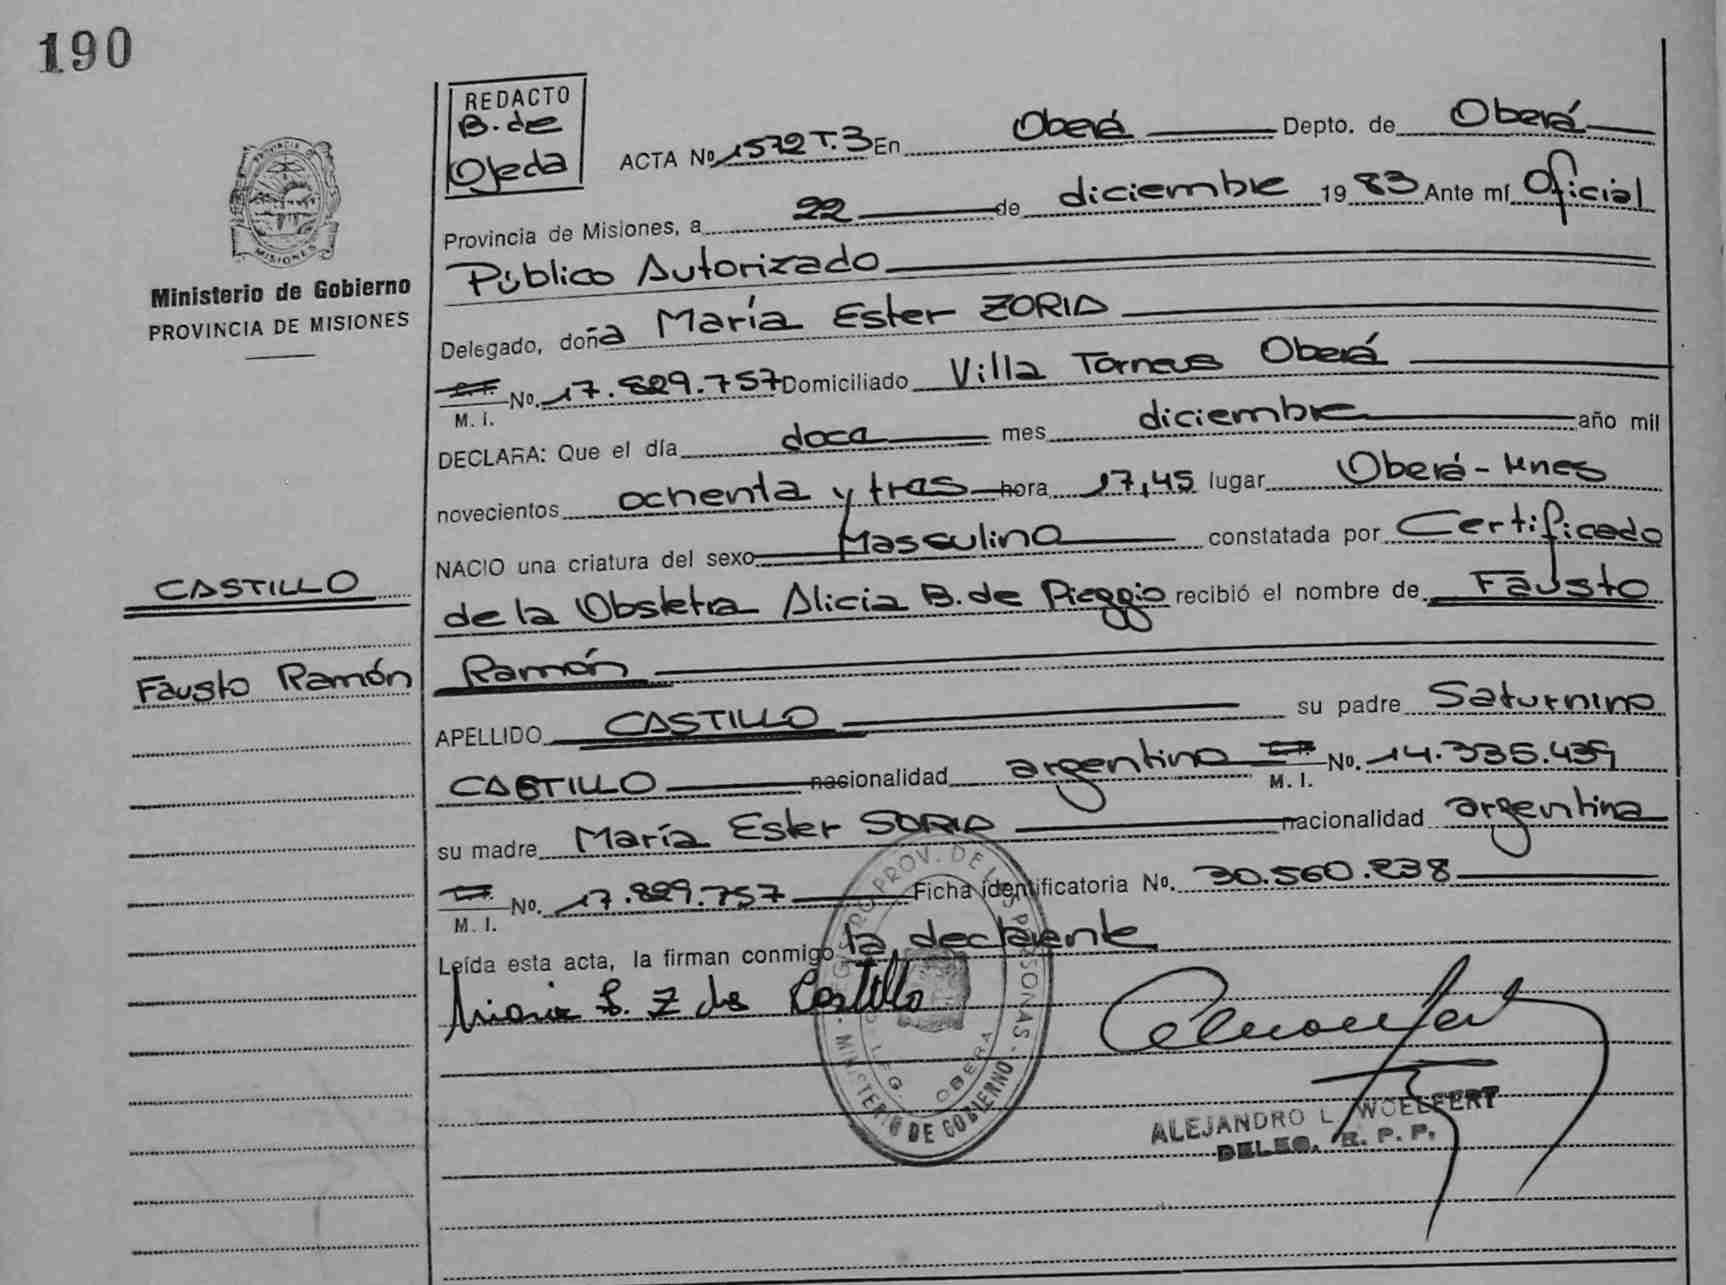 190
REDACTO
B. de
Ojeda
ACTA No 1572 T.3 En Oberá Depto. de Oberá
Provincia de Misiones, a 22 de diciembre 1983 Ante mí Oficial
Público Autorizado
Delegado, doña María Ester ZORIA
No. 17.829.757 Domiciliado Villa Torneus Oberá
M. I.
DECLARA: Que el día doce mes diciembre año mil
novecientos ochenta y tres hora 17,45 lugar Oberá - Mnes
NACIO una criatura del sexo Masculino constatada por Certificado
de la Obstetra Alicia B. de Pieggio recibió el nombre de Fausto
Ramón
APELLIDO CASTILLO su padre Saturnino
CASTILLO nacionalidad argentino M. I. No. 14.335.439
su madre María Ester SORIA nacionalidad argentina
M. I. No. 17.829.757 Ficha identificatoria No. 30.560.238
Leída esta acta, la firman conmigo la declarante
PROVINCIA DE
MISIONES
Ministerio de Gobierno
PROVINCIA DE MISIONES
CASTILLO
Fausto Ramón
María E. Z de Castillo
REGISTRO PROV. DE LAS PERSONAS
MINISTERIO DE GOBIERNO
OBERA
ALEJANDRO L. WOELFERT
DELEG. R. P. P.